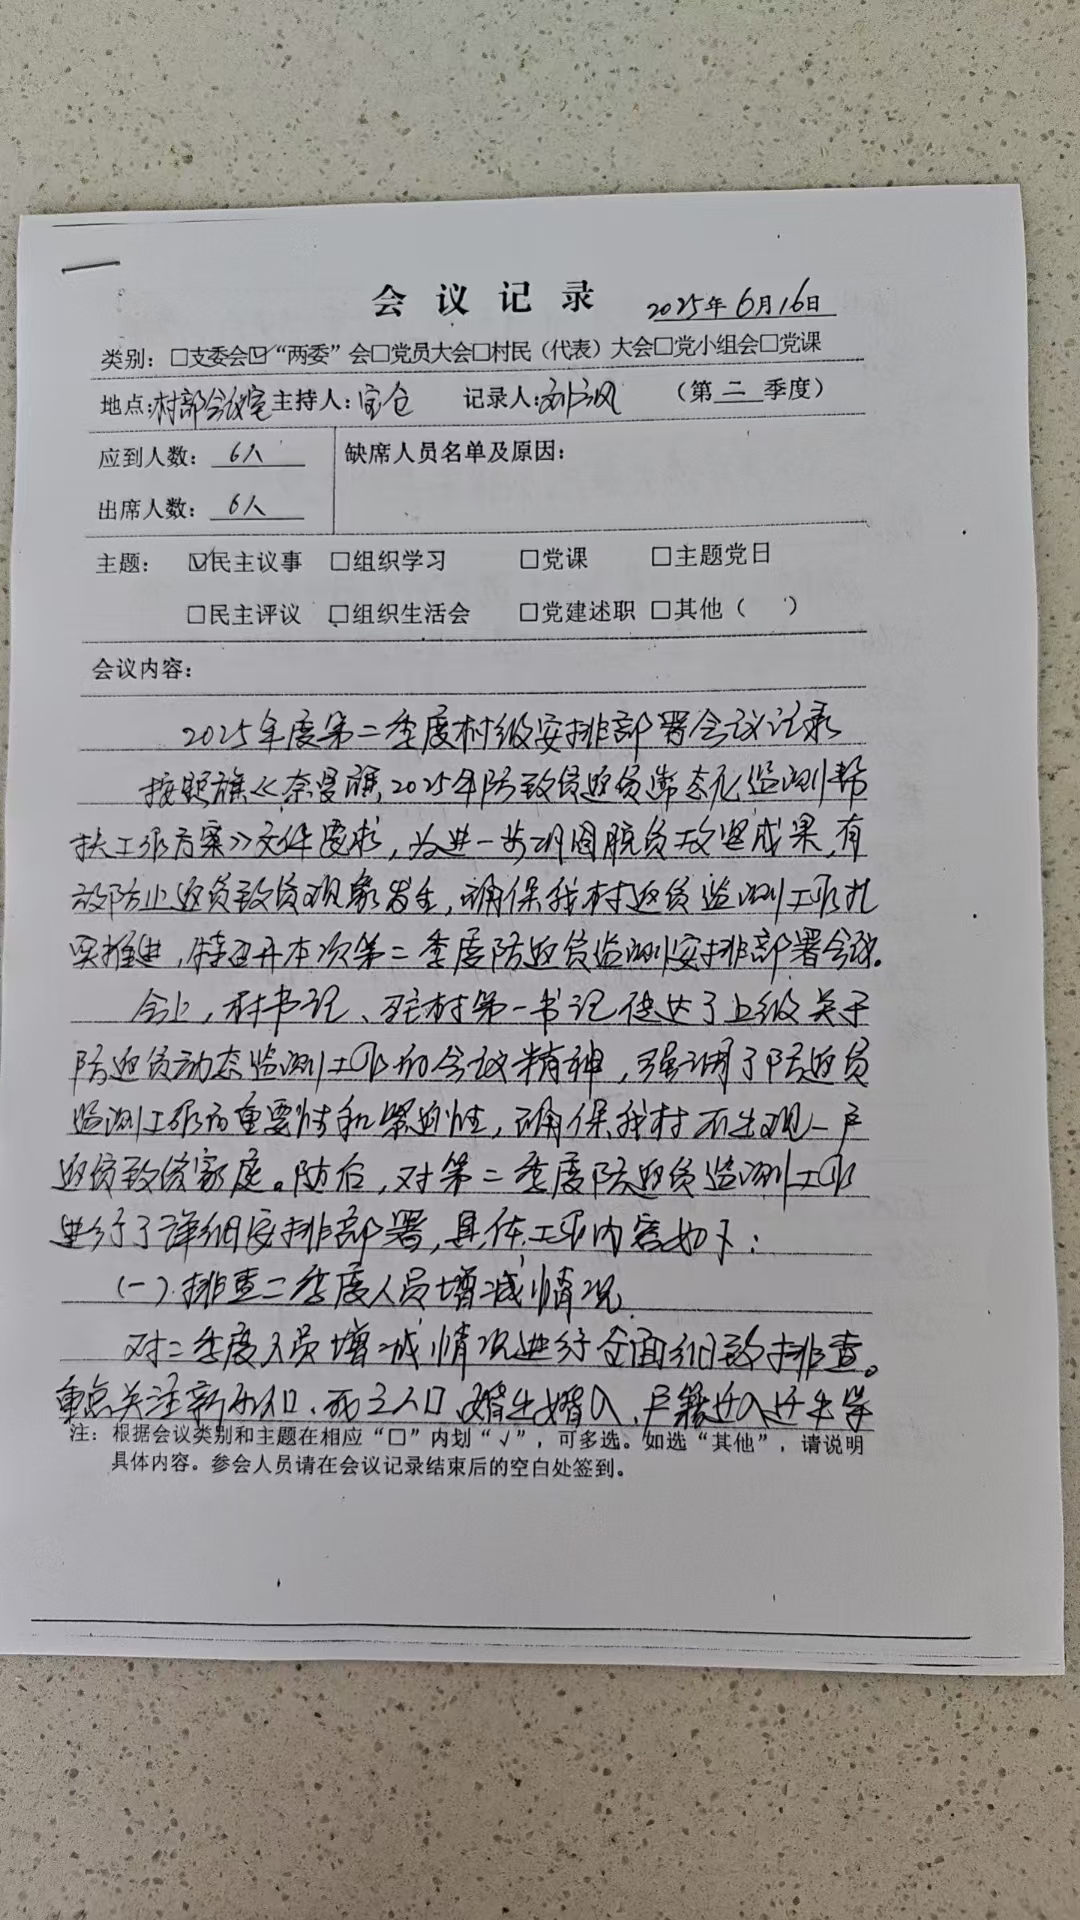 会议记录 2025年6月16日
类别：□支委会☑“两委”会□党员大会□村民（代表）大会□党小组会□党课
地点：村部会议室 主持人：宝仓 记录人： （第二季度）
应到人数：6人 缺席人员名单及原因：
出席人数：6人
主题：☑民主议事 □组织学习 □党课 □主题党日
□民主评议 □组织生活会 □党建述职 □其他（ ）
会议内容：
2025年度第二季度村级安排部署会议记录
按照旗《奈曼旗2025年防致贫返贫常态化监测帮
扶工作方案》文件要求，为进一步巩固脱贫攻坚成果，有
效防止返贫致贫现象发生，确保我村返贫监测工作扎
实推进，特召开本次第二季度防返贫监测安排部署会议。
会上，村书记、驻村第一书记传达了上级关于
防返贫动态监测工作的会议精神，强调了防返贫
监测工作的重要性和紧迫性，确保我村不出现一户
返贫致贫家庭。随后，对第二季度防返贫监测工作
进行了详细安排部署，具体工作内容如下：
（一）.排查二季度人员增减情况
对二季度人员增减情况进行全面细致排查。
重点关注新生人口、死亡人口、婚出婚入、户籍迁入迁出等
注：根据会议类别和主题在相应“□”内划“√”，可多选。如选“其他”，请说明
具体内容。参会人员请在会议记录结束后的空白处签到。